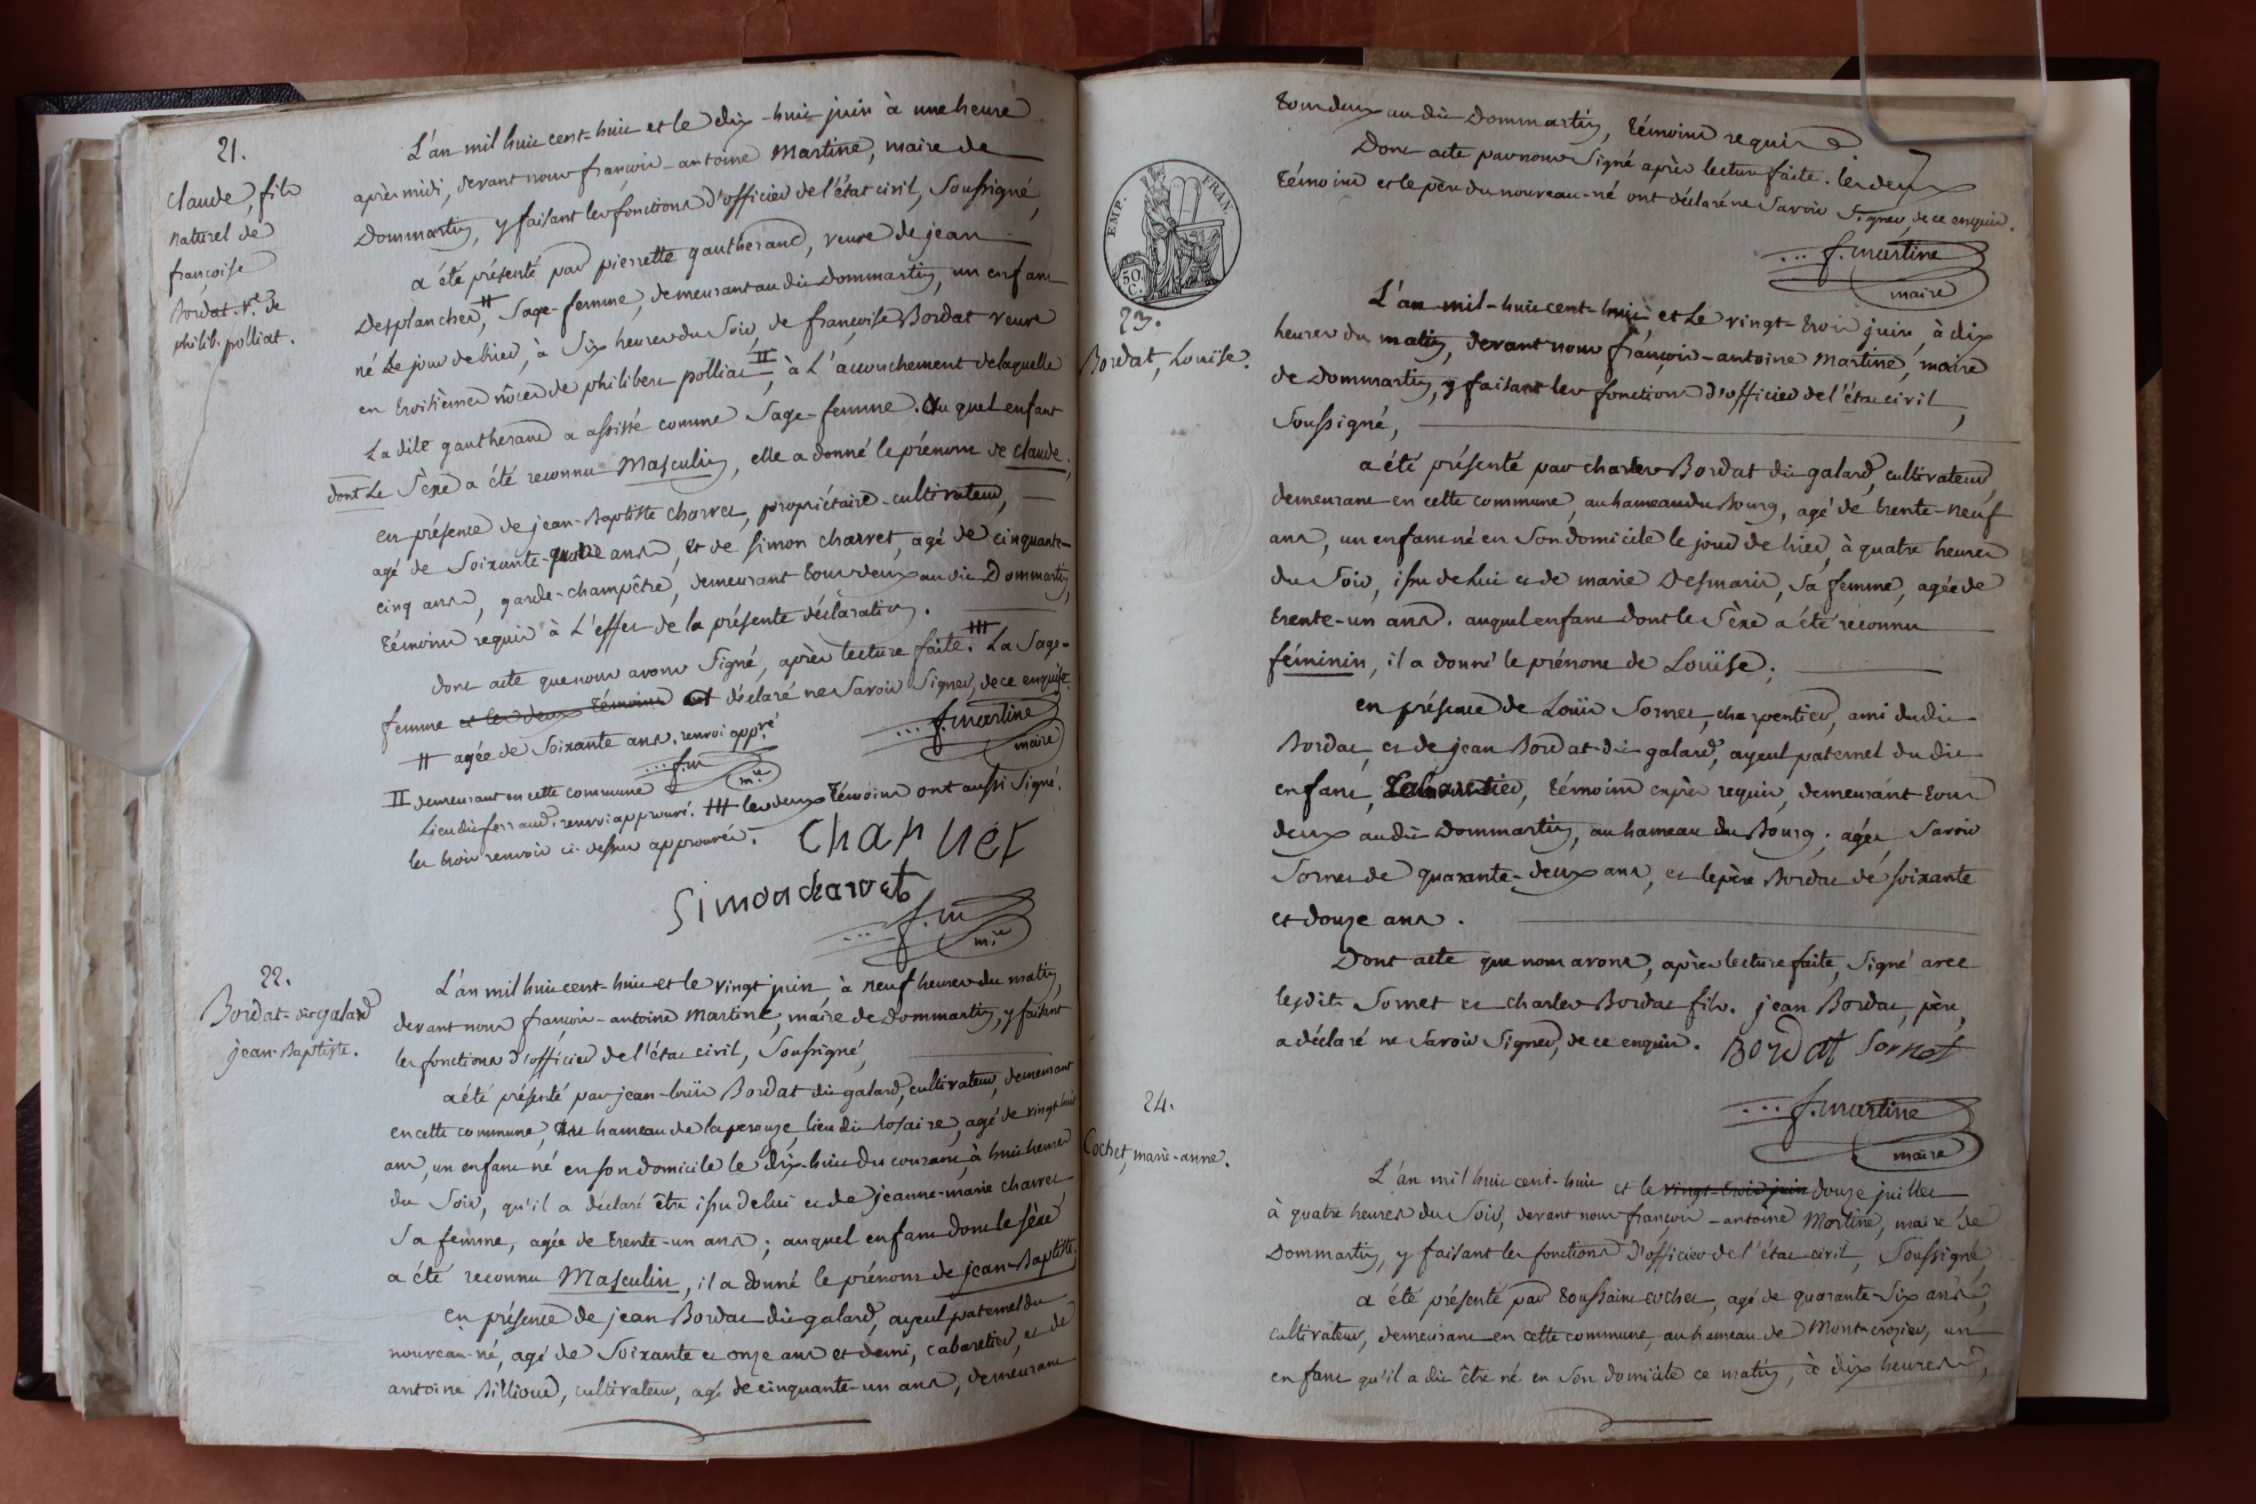 21.
Claude, fils
naturel de
françoise
Bordat v.e de
philib. polliat.
L'an mil huit cent-huit et le dix-huit juin à une heure
après midi, devant nous françois-antoine Martine, maire de
Dommartin, y faisant les fonctions d'officier de l'état civil, Soussigné,
a été présenté par pierrette gautherand, veuve de jean
Desplanches, # Sage-femme, demeurant au dit Dommartin, un enfant
né Le jour de hier, à Six heures du Soir, de françoise Bordat veuve
en troisièmes nôces de philibert polliat II, à L'accouchement de laquelle
La dite gautherand a assisté comme Sage-femme. Au quel enfant
dont Le Sèxe a été reconnu Masculin, elle a donné le prénom de Claude;
en présence de jean-Baptiste Charvet, propriétaire-cultivateur,
agé de Soixante- ans, et de Simon charvet, agé de cinquante-
cinq ans, garde-champêtre, demeurant tous deux au dit Dommartin,
témoins requis à L'effet de la présente déclaration.
dont acte que nous avons Signé, après lecture faite. ### La Sage-
femme et les deux témoins ont déclaré ne Savoir Signer, de ce enquise.
... f. martine
maire
# agée de Soixante ans. renvoi app.ré
... f. m
m.re
II demeurant en cette commune
Lieu dit ferraud. renvoi approuvé. ### les deux témoins ont aussi Signé.
les trois renvois ci-dessus approuvés.
Charvet
Simon charvet
... f. m
m.re
22.
Bordat-dit galard
jean-Baptiste.
L'an mil huit cent-huit et le vingt juin, à neuf heures du matin,
devant nous françois-antoine Martine, maire de Dommartin, y faisant
les fonctions d'officier de l'état civil, Soussigné,
a été présenté par jean-louis Bordat dit galard, cultivateur, demeurant
en cette commune, au hameau de laperouze, lieu dit rosaire, agé de vingt-huit
ans, un enfant né en son domicile le dix-huit du courant, à huit heures
du Soir, qu'il a déclaré être issu de lui et de jeanne-marie charvet
Sa femme, agée de trente-un ans; auquel enfant dont le sèxe
a été reconnu Masculin, il a donné le prénom de jean-Baptiste.
en présence de jean Bordat dit galard, ayeul paternel du
nouveau-né, agé de Soixante et onze ans et demi, cabaretier, et de
antoine Billioud, cultivateur, agé de cinquante-un ans, demeurant
tous deux au dit Dommartin, témoins requis.
Dont acte par nous Signé après lecture faite. les deux
témoins et le père du nouveau-né ont déclaré ne Savoir Signer, de ce enquis.
... f. martine
maire
EMP. FRAN.
50
C.
23.
Bordat, Louïse.
L'an mil-huit cent-huit, et Le vingt-trois juin, à dix
heures du matin, devant nous françois-antoine Martine, maire
de Dommartin, y faisant les fonctions d'officier de l'état civil,
Soussigné,
a été présenté par charles Bordat dit galard, cultivateur
demeurant en cette commune, au hameau du Bourg, agé de trente-neuf
ans, un enfant né en Son domicile le jour de hier, à quatre heures
du Soir, issu de Lui et de marie Desmaris, Sa femme, agée de
trente-un ans. auquel enfant dont le Sèxe a été reconnu
féminin, il a donné le prénom de Louïse;
en présence de Louïs Sornet, charpentier, ami du dit
Bordat, et de jean Bordat dit galard, ayeul paternel du dit
enfant, cabaretier, témoins exprès requis, demeurant tous
deux au dit Dommartin, au hameau du Bourg; agés Savoir
Sornet de quarante-deux ans, et le père Bordat de soixante
et douze ans.
Dont acte que nous avons, après lecture faite, Signé avec
lesdits Sornet et charles Bordat fils. jean Bordat, père,
a déclaré ne Savoir Signer, de ce enquis. Bordat Sornet
... f. martine
maire
24.
Cochet, marie-anne.
L'an mil huit cent-huit et le vingt-trois juin douze juillet
à quatre heures du Soir, devant nous françois-antoine Martine, maire de
Dommartin, y faisant les fonctions d'officier de l'état civil, Soussigné,
a été présenté par toussaint cochet, agé de quarante-Six ans,
cultivateur, demeurant en cette commune au hameau de Mont-crozier, un
enfant qu'il a dit être né en Son domicile ce matin, à dix heures,